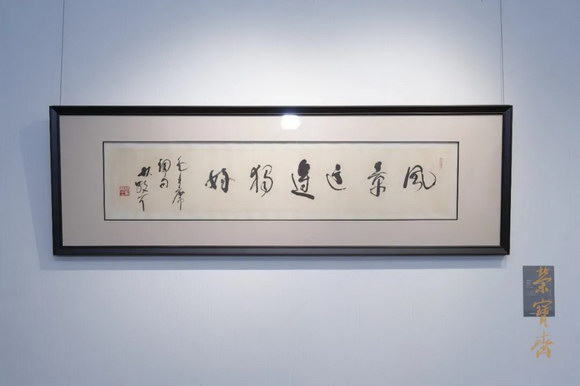 風景這邊獨好
毛主席
詞句
林散耳
榮寶齋